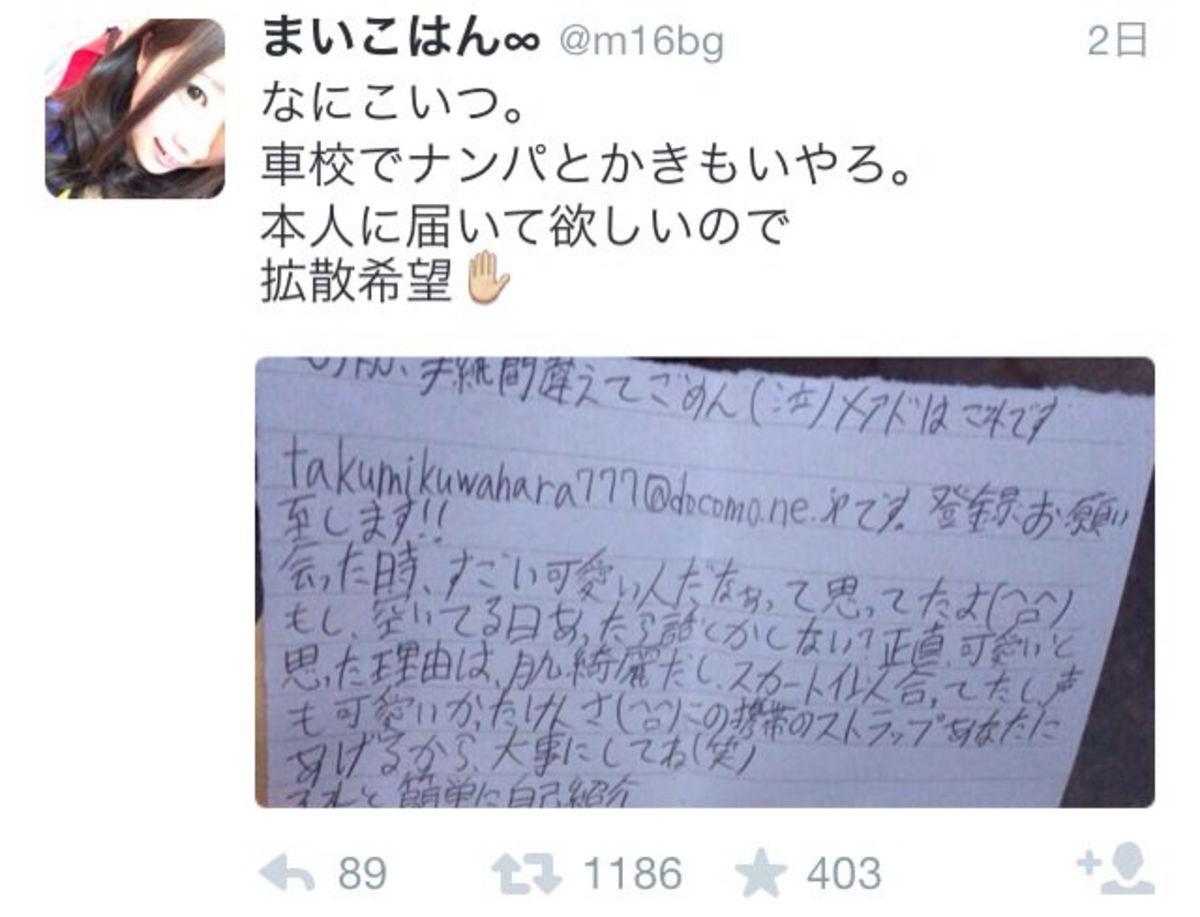 まいこはん∞ @m16bg 2日
なにこいつ。
車校でナンパとかきもいやろ。
本人に届いて欲しいので
拡散希望✋
手紙間違えてごめん(泣)メアドはこれです
takumikuwahara777@docomo.ne.jpです。登録お願い
至します!!
会った時、すごい可愛い人だなぁって思ってたよ(^○^)
もし、空いてる日あったら話しとかしない?正直、可愛いと
思った理由は、肌綺麗だし、スカート似合ってたし、声
も可愛いかったけんさ(^○^)この携帯のストラップあなたに
あげるから、大事にしてね(笑)
それと簡単に自己紹介
89 1186 403